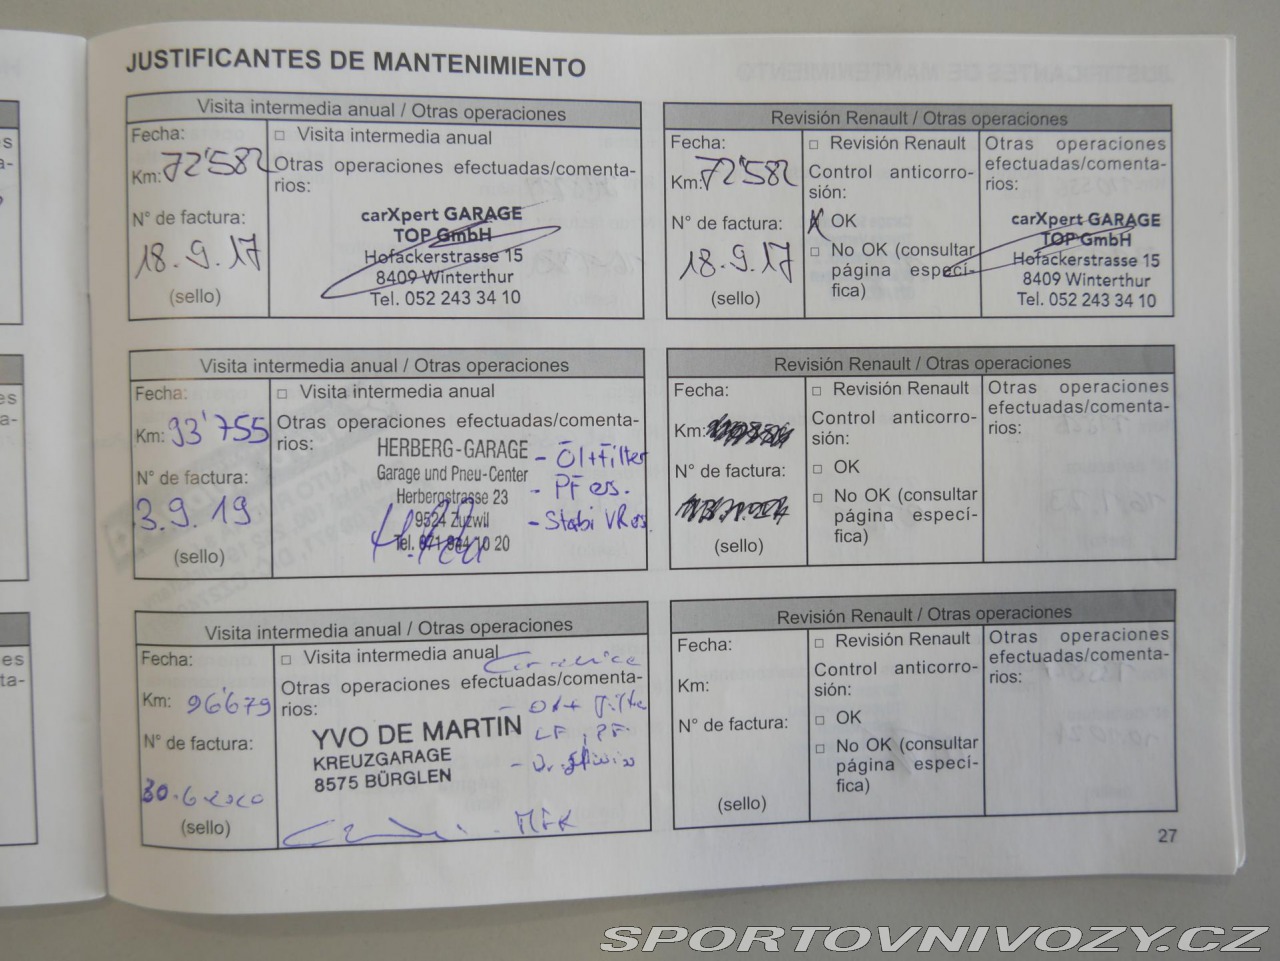 JUSTIFICANTES DE MANTENIMIENTO
Visita intermedia anual / Otras operaciones
Fecha:
Km: 72'582
N° de factura:
18.9.17
(sello)
□ Visita intermedia anual
Otras operaciones efectuadas/comenta-
rios:
carXpert GARAGE
TOP GmbH
Hofackerstrasse 15
8409 Winterthur
Tel. 052 243 34 10
Revisión Renault / Otras operaciones
Fecha:
Km: 72'582
N° de factura:
18.9.17
(sello)
□ Revisión Renault
Control anticorro-
sión:
X OK
□ No OK (consultar
página especí-
fica)
Otras operaciones
efectuadas/comenta-
rios:
carXpert GARAGE
TOP GmbH
Hofackerstrasse 15
8409 Winterthur
Tel. 052 243 34 10
Visita intermedia anual / Otras operaciones
Fecha:
Km: 93'755
N° de factura:
3.9.19
(sello)
□ Visita intermedia anual
Otras operaciones efectuadas/comenta-
rios:
HERBERG-GARAGE
Garage und Pneu-Center
Herbergstrasse 23
9524 Zuzwil
Tel. 071 944 10 20
- Öl+Filter
- PF ers.
- Stabi VR ers.
Revisión Renault / Otras operaciones
Fecha:
Km:
N° de factura:
(sello)
□ Revisión Renault
Control anticorro-
sión:
□ OK
□ No OK (consultar
página especí-
fica)
Otras operaciones
efectuadas/comenta-
rios:
Visita intermedia anual / Otras operaciones
Fecha:
Km: 96'679
N° de factura:
30.6.2020
(sello)
□ Visita intermedia anual
Otras operaciones efectuadas/comenta-
rios:
- Öl + Filter
YVO DE MARTIN
KREUZGARAGE
8575 BÜRGLEN
- MFK
Revisión Renault / Otras operaciones
Fecha:
Km:
N° de factura:
(sello)
□ Revisión Renault
Control anticorro-
sión:
□ OK
□ No OK (consultar
página especí-
fica)
Otras operaciones
efectuadas/comenta-
rios:
27
SPORTOVNIVOZY.CZ